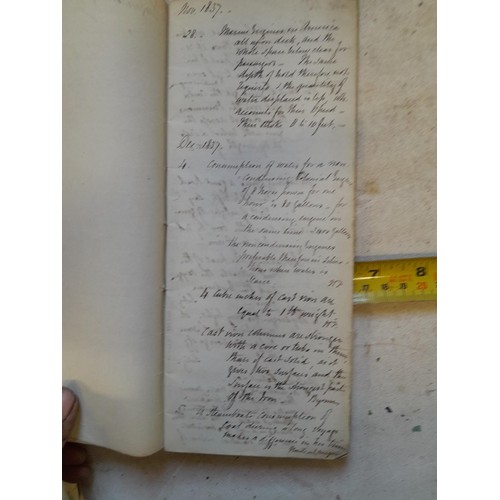 Nov. 1837.
30. Marine Engines in America
all upon deck, and the
whole space below clear for
passengers — The same
depth of hold therefore not
required & the quantity of
water displaced is less. This
accounts for their speed —
Their stroke 8 to 10 feet. —
Dec. 1837.
4. Consumption of water for a non
condensing Engine
of 8 horse power for one
hour is 80 Gallons — for
a condensing engine in
the same time Gallons
The noncondensing Engines
preferable therefore in
where water is
scarce
4 Cubic inches of cast iron are
equal to 1 lb weight
Cast iron columns are stronger
with a core or tube in them
than if cast solid, as it
gives two surfaces and the
surface is the strongest part
of the Iron
5. A Steamboats consumption of
coal during a long voyage
makes a difference in her
7 8